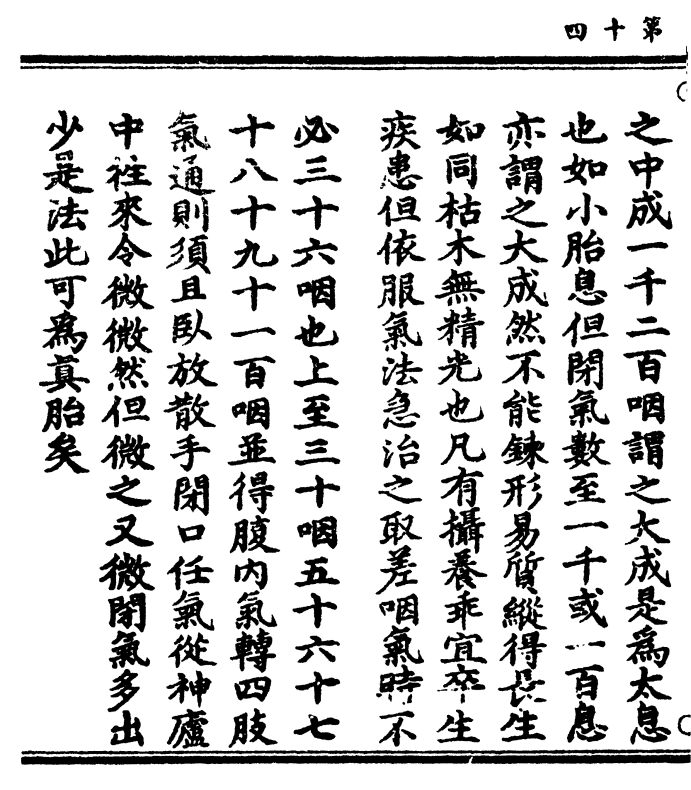 第十四
之中成一千二百咽謂之大成是為太息
也如小胎息但閉氣數至一千或一百息
亦謂之大成然不能鍊形易質縱得長生
如同枯木無精光也凡有攝養乖宜卒生
疾患但依服氣法急治之取差咽氣時不
必三十六咽也上至三十咽五十六十七
十八十九十一百咽並得腹內氣轉四肢
氣通則須且臥放散手閉口任氣從神廬
中往來令微微然但微之又微閉氣多出
少是法此可為真胎矣